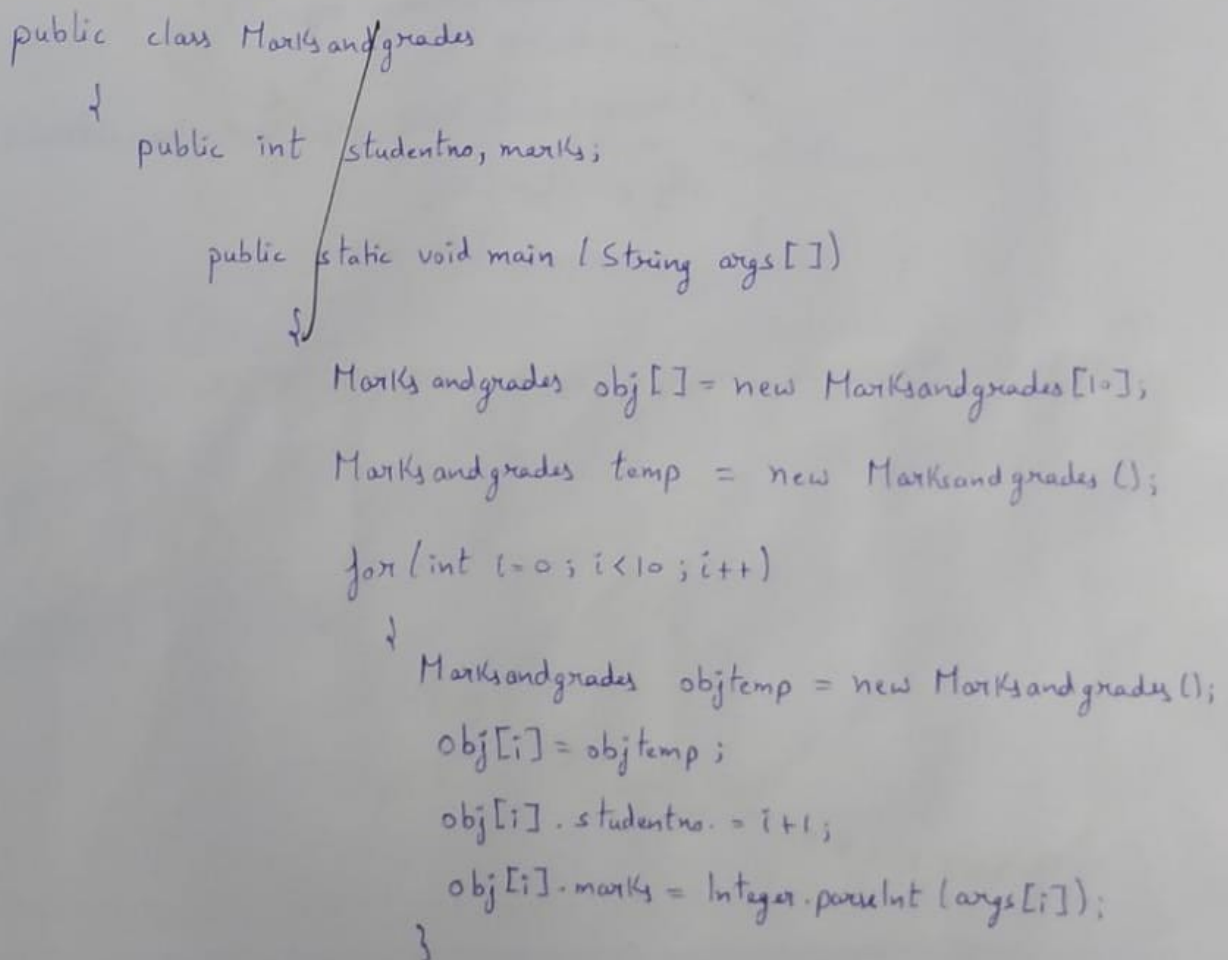 public class Marksandgrades
{
public int studentno, marks;
public static void main (String args[])
{
Marksandgrades obj[] = new Marksandgrades[10];
Marksandgrades temp = new Marksandgrades();
for(int i=0; i<10; i++)
{
Marksandgrades objtemp = new Marksandgrades();
obj[i] = objtemp;
obj[i].studentno. = i+1;
obj[i].marks = Integer.parseInt(args[i]);
}